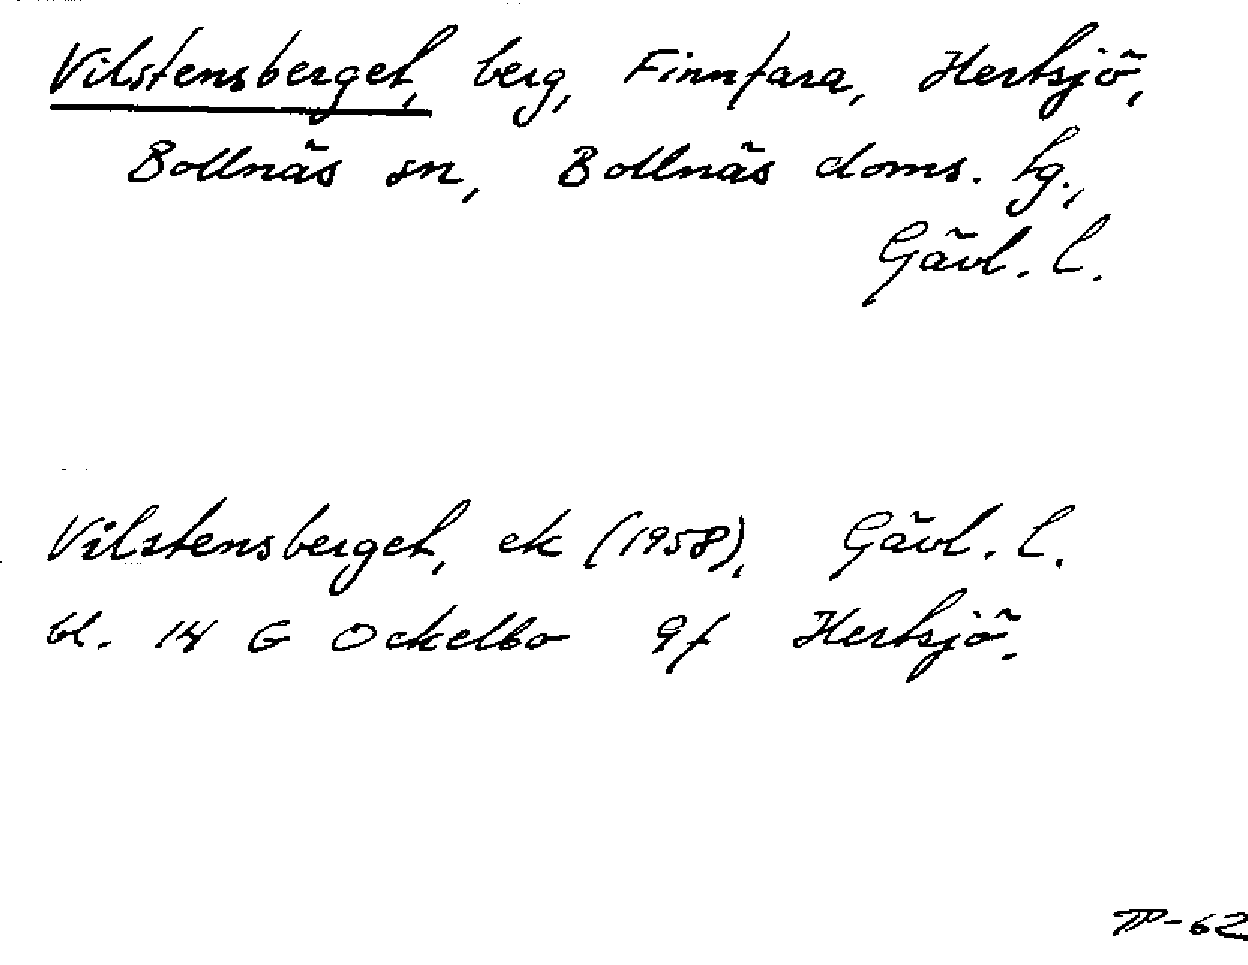 Vilstensberget, berg, Finnfara, Hertsjö,
Bollnäs sn, Bollnäs doms. tg.,
Gävl. l.
Vilstensberget, ek (1958), Gävl. l.
bl. 14 G Ockelbo 9f Hertsjö.
TP-62